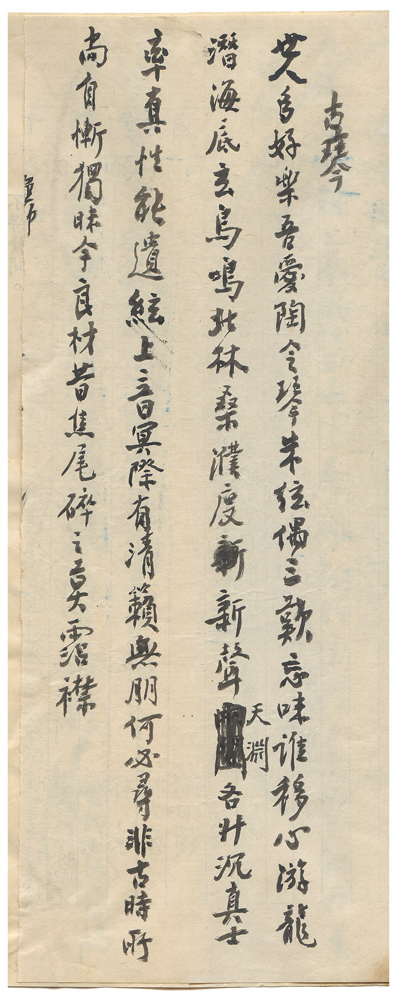 古琴
世人好樂吾愛陶令琴朱弦偶三歎忘味誰移心游龍
潛海底玄鳥鳴北林桑濮度新聲天淵各升沉真士
率真性能遺絃上音冥際有清籟無朋何必尋非古時所
尚自慚獨昧今良材昔焦尾碎之莫霑襟